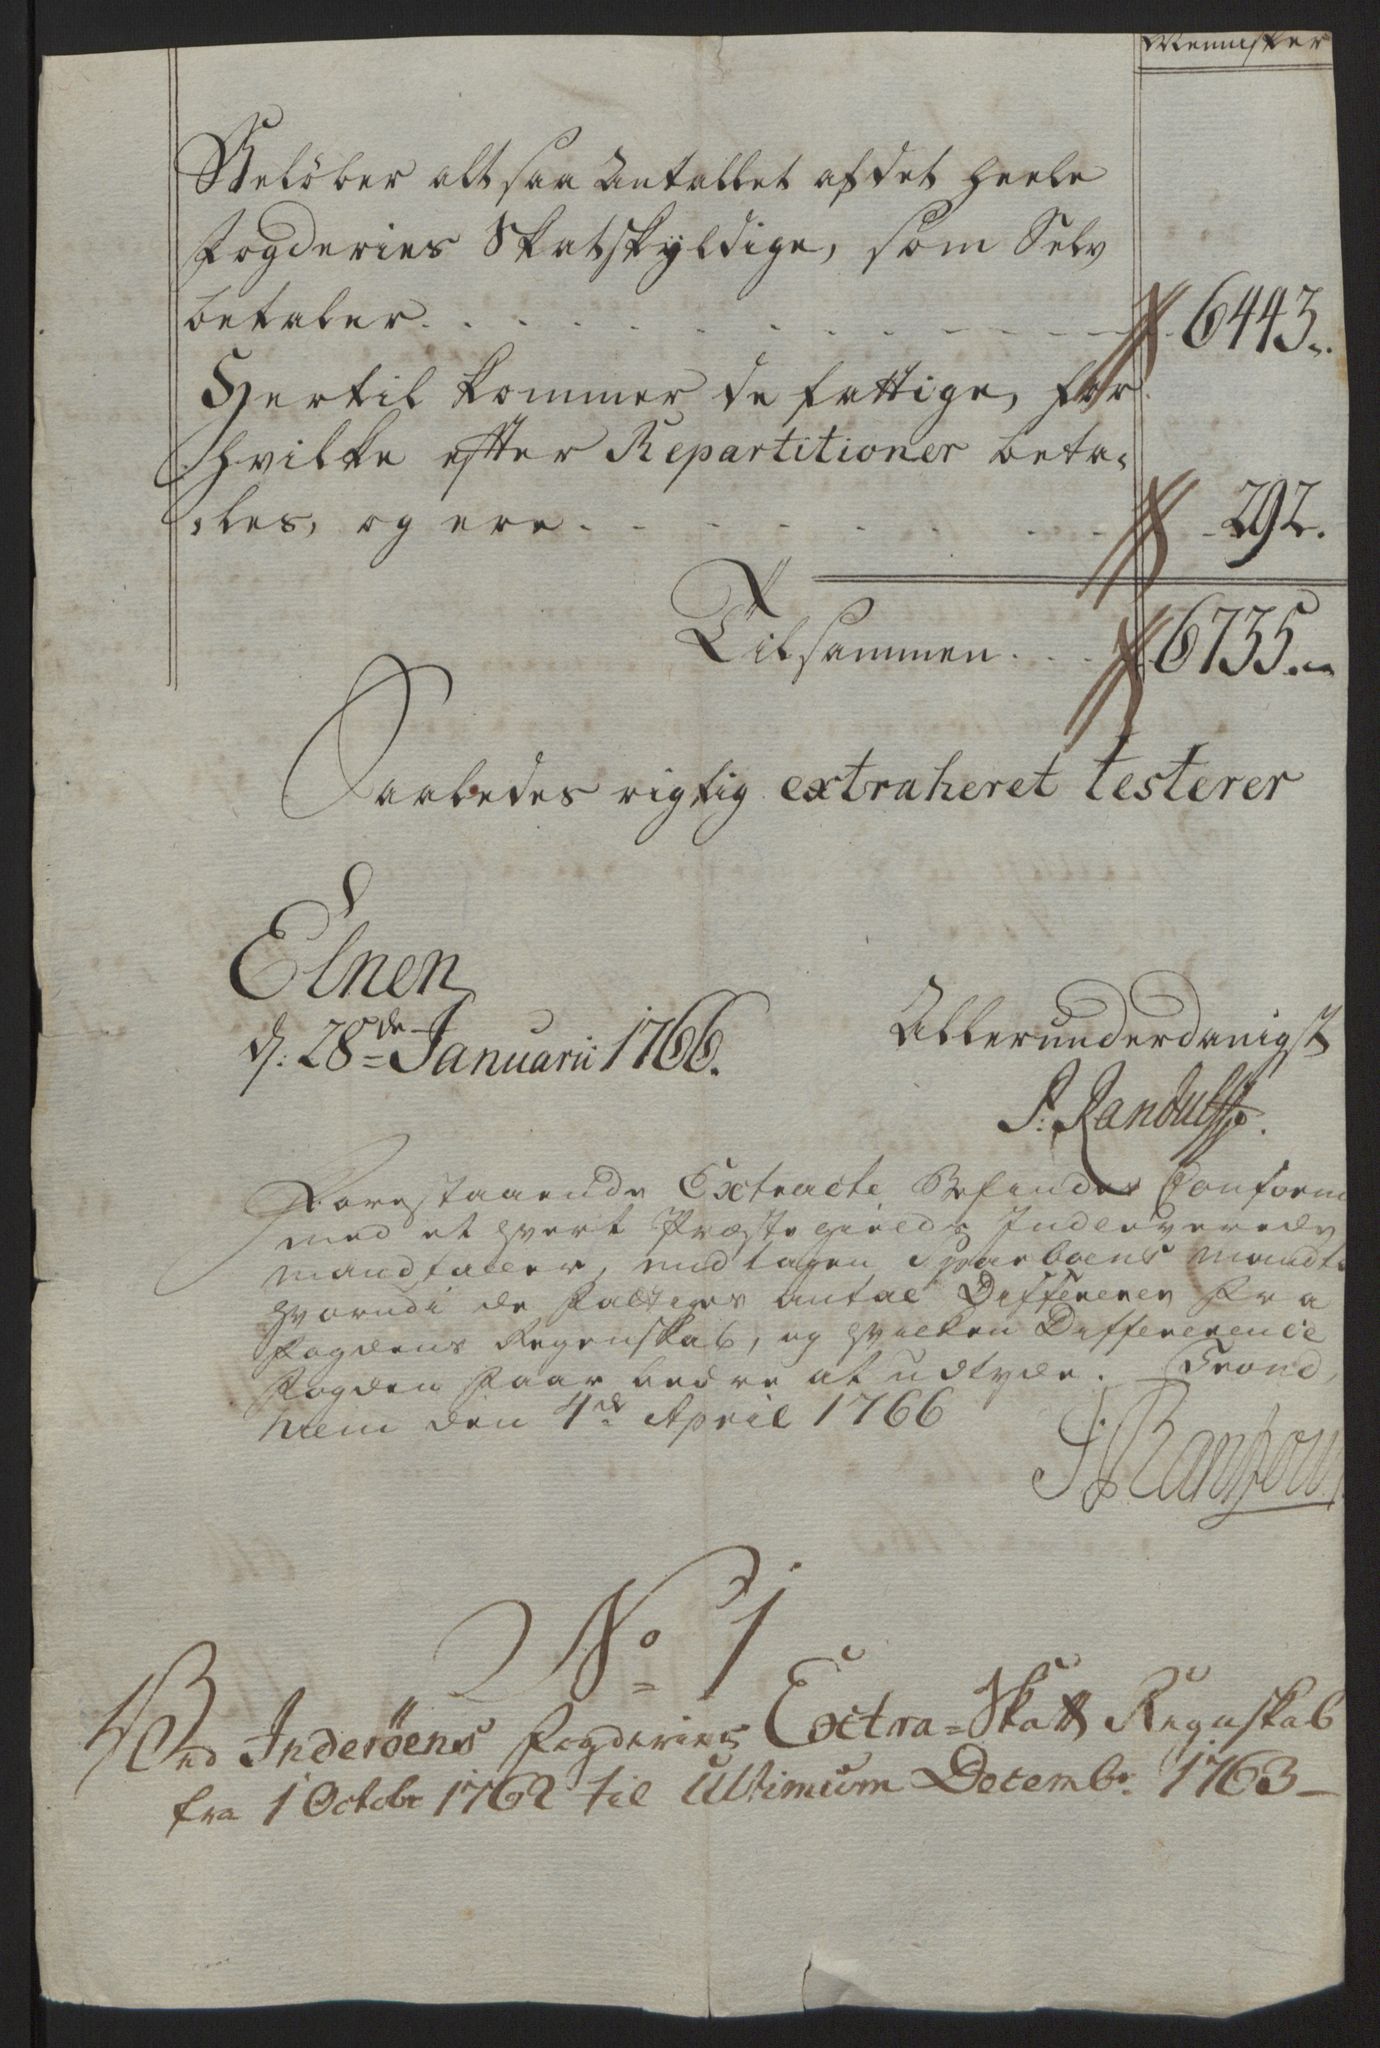 Mennisker
Beløber alt saa Antallet af det heele
Fogderies Skatskyldige, som Selv
betaler . . . . . . . . . . . 6443.
Hertil kommer de fattige, for
hvilke efter Repartitioner beta-
-les, og ere . . . . . . . . 292.
Tilsammen . . . 6735.
Saaledes rigtig extraheret testerer
Elnen
d: 28de Januarii 1766.
Allerunderdanigst
P: Randulff.
Forestaaende Extracte Befindes Conform
med et hvert Præstegields Indleverede
mandtaller, undtagen Sparboens mandt.
hvorudi de Fattiges antal Differerer fra
Fogdens Regenskab, og hvilken Difference
Fogden faar bedre at udtyde. Trond,
hiem den 4de April 1766
No 1
Ved Inderöens Fogderies Extra-Skatt Regnskab
fra 1 Octobr 1762 til Ultimum Decembr. 1763